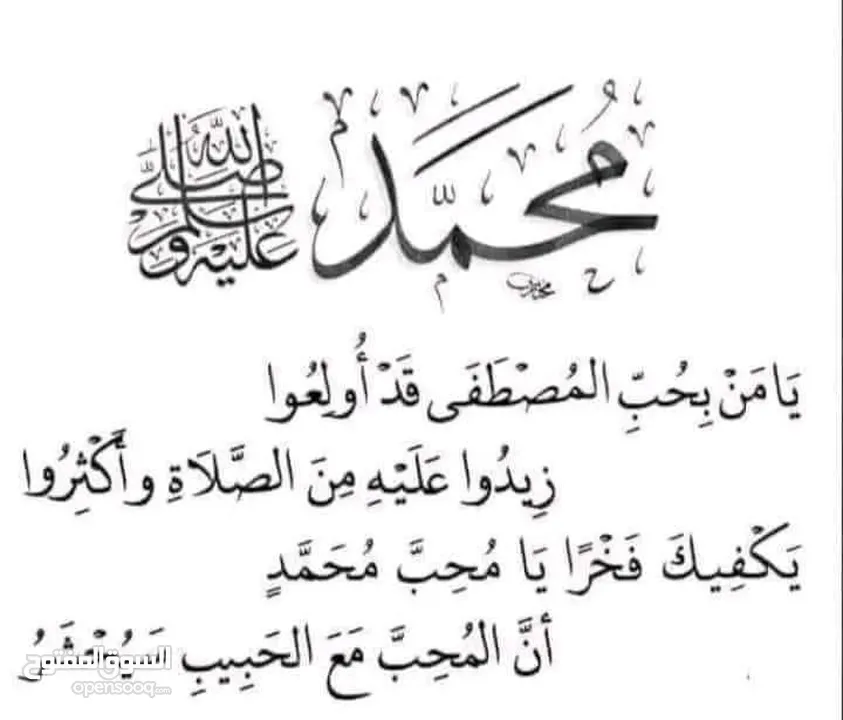 مُحَمَّد صَلَّى اللّٰه عَلَيْهِ وَسَلَّم
يَا مَنْ بِحُبِّ المُصْطَفَى قَدْ أُولِعُوا
زِيدُوا عَلَيْهِ مِنَ الصَّلَاةِ وأَكْثِرُوا
يَكْفِيكَ فَخْرًا يَا مُحِبَّ مُحَمَّدٍ
أنَّ المُحِبَّ مَعَ الحَبِيبِ
السوق المفتوح
opensooq.com